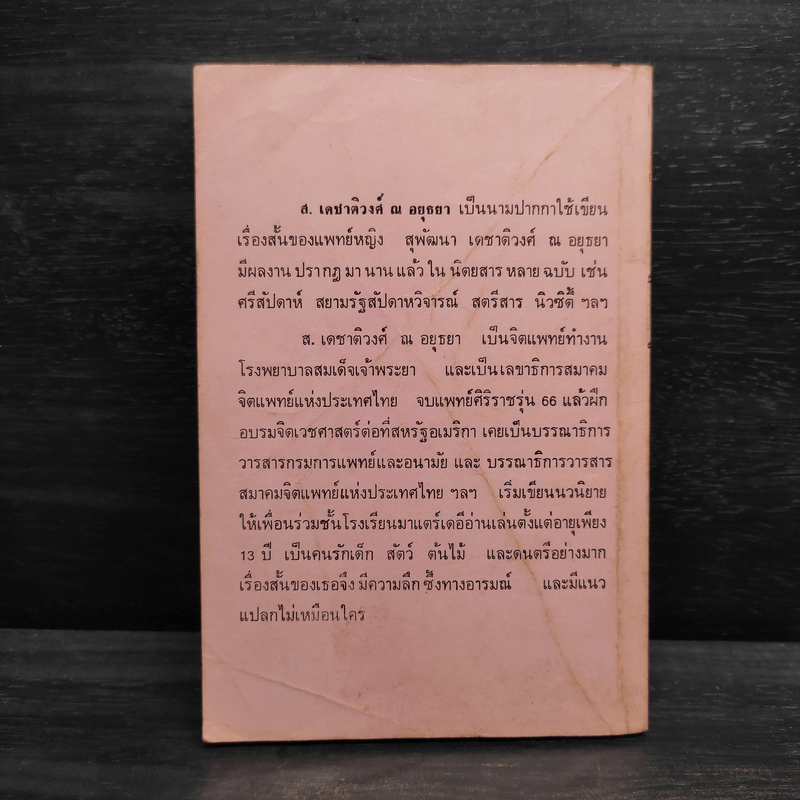 ส. เดชาติวงศ์ ณ อยุธยา เป็นนามปากกาใช้เขียน
เรื่องสั้นของแพทย์หญิง สุพัฒนา เดชาติวงศ์ ณ อยุธยา
มีผลงาน ปรากฎ มา นาน แล้ว ใน นิตยสาร หลาย ฉบับ เช่น
ศรีสัปดาห์ สยามรัฐสัปดาหวิจารณ์ สตรีสาร นิวซิตี้ ฯลฯ
ส. เดชาติวงศ์ ณ อยุธยา เป็นจิตแพทย์ทำงาน
โรงพยาบาลสมเด็จเจ้าพระยา และเป็นเลขาธิการสมาคม
จิตแพทย์แห่งประเทศไทย จบแพทย์ศิริราชรุ่น 66 แล้วฝึก
อบรมจิตเวชศาสตร์ต่อที่สหรัฐอเมริกา เคยเป็นบรรณาธิการ
วารสารกรมการแพทย์และอนามัย และ บรรณาธิการวารสาร
สมาคมจิตแพทย์แห่งประเทศไทย ฯลฯ เริ่มเขียนนวนิยาย
ให้เพื่อนร่วมชั้นโรงเรียนมาแตร์เดอีอ่านเล่นตั้งแต่อายุเพียง
13 ปี เป็นคนรักเด็ก สัตว์ ต้นไม้ และดนตรีอย่างมาก
เรื่องสั้นของเธอจึง มีความลึก ซึ้งทางอารมณ์ และมีแนว
แปลกไม่เหมือนใคร